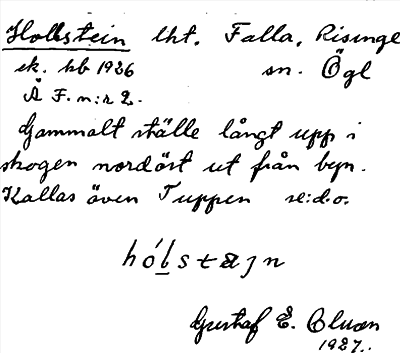 Hollstein lht. Falla, Risinge
ek. kb 1926 sn. Ögl
Å F. n:r 2.
Gammalt ställe långt upp i
skogen nordöst ut från byn.
Kallas även Tuppen se:d.o.
Gustaf E. Oluon
1927.